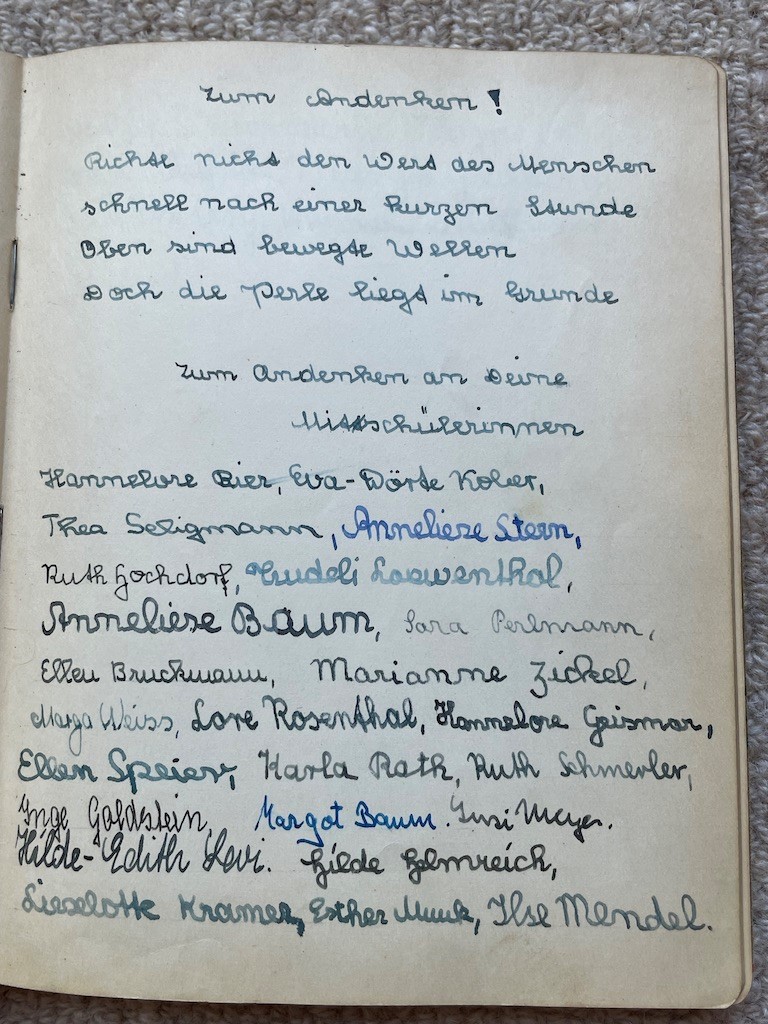 Zum Andenken!
Richte nicht den Wert des Menschen
schnell nach einer kurzen Stunde
Oben sind bewegte Wellen
Doch die Perle liegt im Grunde
Zum Andenken an Deine
Mitschülerinnen
Hannelore Bier, Eva-Dörte Kober,
Thea Seligmann, Anneliese Stern,
Ruth Hochdorf, Trudeli Loewenthal,
Anneliese Baum, Sara Perlmann,
Ellen Bruckmann, Marianne Zickel,
Marga Weiss, Lore Rosenthal, Hannelore Geismar,
Ellen Speier, Karla Rath, Ruth Schmerler,
Inge Goldstein, Margot Baum. Susi Meyer.
Hilde-Edith Levi. Hilde Helmreich,
Lieselotte Kramer, Esther Munk, Ilse Mendel.